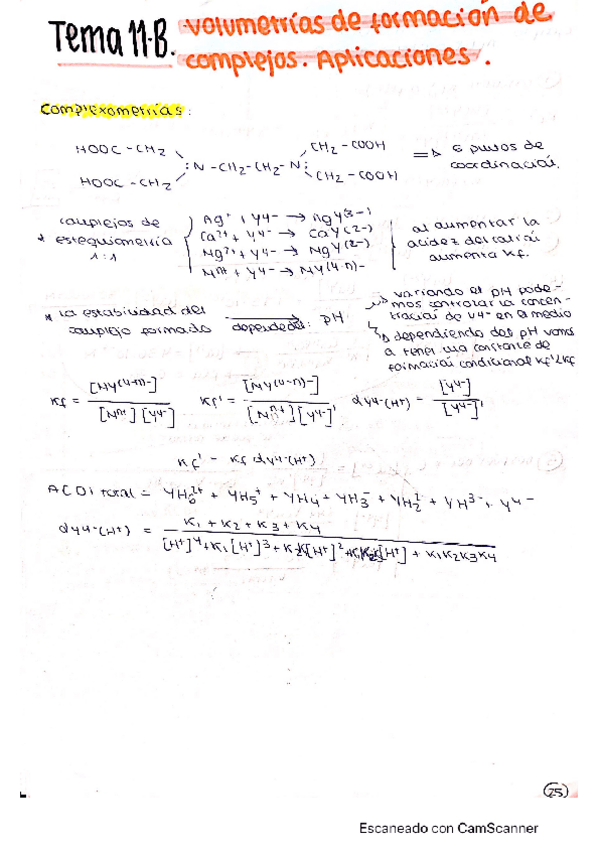 Tema 11-B. volumetrías de formación de
complejos. Aplicaciones.
Complexometrías:
HOOC-CH2 CH2-COOH
:N-CH2-CH2-N: => 6 puntos de
HOOC-CH2 CH2-COOH coordinación.
complejos de
* estequiometría
1:1
Ag+ + Y4- → AgY3-
Ca2+ + Y4- → CaY(2-)
Mg2+ + Y4- → MgY(2-)
Mn+ + Y4- → MY(4-n)-
al aumentar la
acidez del catión
aumenta Kf.
* La estabilidad del
complejo formado dependedel: pH
variando el pH pode-
mos controlar la concen-
tración de Y4- en el medio
dependiendo del pH vamos
a tener una constante de
formación condicional Kf'<Kf
Kf = [MY(4-n)-] / [Mn+][Y4-] Kf' = [MY(4-n)-] / [Mn+][Y4-]' αY4-(H+) = [Y4-] / [Y4-]'
Kf' = Kf αY4-(H+)
total = YH6 2+ + YH5+ + YH4 + YH3- + YH2 2- + YH3- + Y4-
αY4-(H+) = K1 + K2 + K3 + K4
[H+]4 + K1[H+]3 + [H+]2 + [H+] + K1K2K3K4
25
Escaneado con CamScanner